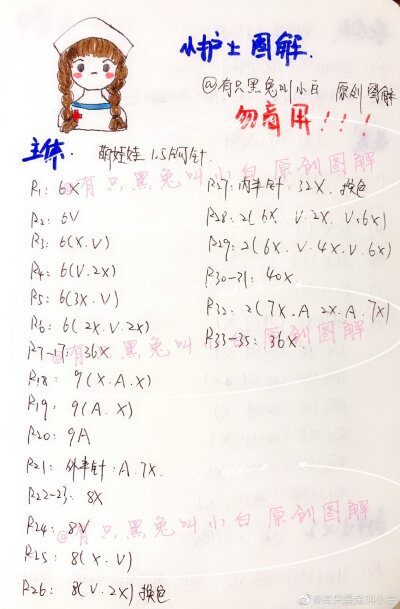 小护士图解.
@有只黑兔叫小白 原创图解
勿商用!!!
主体: 萌娃娃 1.5钩针
R1: 6X
R2: 6V
R3: 6(X.V)
R4: 6(V.2X)
R5: 6(3X.V)
R6: 6(2X.V.2X)
R7-17: 36X
R18: 9(X.A.X)
R19: 9(A.X)
R20: 9A
R21: 外半针: A.7X.
R22-23: 8X
R24: 8V
R25: 8(X.V)
R26: 8(V.2X) 换色
R27: 内半针: 32X. 换色
R28: 2(6X. V.2X. V.6X)
R29: 2(6X. V.4X. V.6X)
R30-31: 40X.
R32: 2(7X.A 2X.A.7X)
R33-35: 36X.
@有只黑兔叫小白原创图解
@有只黑兔叫小白原创图解
@有只黑兔叫小白原创图解
@有只黑兔叫小白